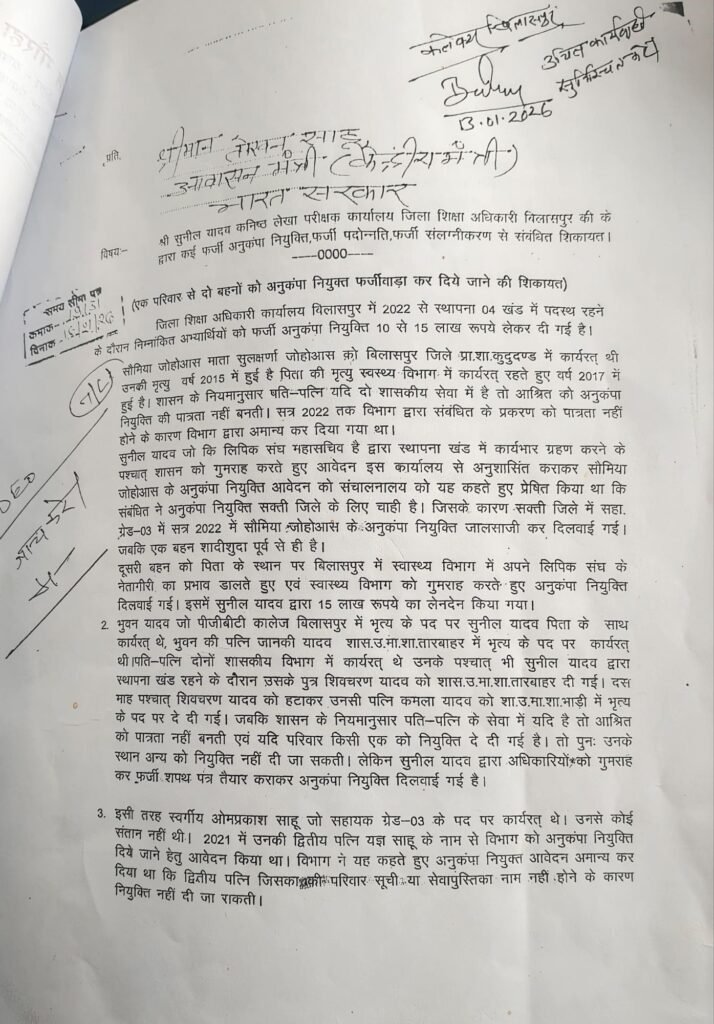 कलेक्टर बिलासपुर
उचित कार्यवाही
सुनिश्चित करें
13.01.2026
प्रति,
श्रीमान तोखन साहू
आवासन मंत्री (केन्द्रीय मंत्री)
भारत सरकार
विषयः-
श्री सुनील यादव कनिष्ठ लेखा परीक्षक कार्यालय जिला शिक्षा अधिकारी बिलासपुर की के
द्वारा कई फर्जी अनुकंपा नियुक्ति,फर्जी पदोन्नति,फर्जी संलग्नीकरण से संबंधित शिकायत।
----0000----
(एक परिवार से दो बहनों को अनुकंपा नियुक्त फर्जीवाड़ा कर दिये जाने की शिकायत)
समय सीमा पत्र
क्रमाक
दिनाक
जिला शिक्षा अधिकारी कार्यालय बिलासपुर में 2022 से स्थापना 04 खंड में पदस्थ रहने
के दौरान निम्नांकित अभ्यार्थियों को फर्जी अनुकंपा नियुक्ति 10 से 15 लाख रूपये लेकर दी गई है।
सौमिया जोहोआस माता सुलक्षर्णा जोहोआस को बिलासपुर जिले प्रा.शा.कुदुदण्ड में कार्यरत् थी
उनकी मृत्यु वर्ष 2015 में हुई है पिता की मृत्यु स्वस्थ्य विभाग में कार्यरत् रहते हुए वर्ष 2017 में
हुई है। शासन के नियमानुसार पति-पत्नि यदि दो शासकीय सेवा में है तो आश्रित को अनुकंपा
नियुक्ति की पात्रता नहीं बनती। सत्र 2022 तक विभाग द्वारा संबंधित के प्रकरण को पात्रता नहीं
होने के कारण विभाग द्वारा अमान्य कर दिया गया था।
सुनील यादव जो कि लिपिक संघ महासचिव है द्वारा स्थापना खंड में कार्यभार ग्रहण करने के
पश्चात् शासन को गुमराह करते हुए आवेदन इस कार्यालय से अनुशासिंत कराकर सौमिया
जोहोआस के अनुकंपा नियुक्ति आवेदन को संचालनालय को यह कहते हुए प्रेषित किया था कि
संबंधित ने अनुकंपा नियुक्ति सक्ती जिले के लिए चाही है। जिसके कारण सक्ती जिले में सहा.
ग्रेड-03 में सत्र 2022 में सौमिया जोहोआस के अनुकंपा नियुक्ति जालसाजी कर दिलवाई गई।
जबकि एक बहन शादीशुदा पूर्व से ही है।
दूसरी बहन को पिता के स्थान पर बिलासपुर में स्वास्थ्य विभाग में अपने लिपिक संघ के
नेतागीरी का प्रभाव डालते हुए एवं स्वास्थ्य विभाग को गुमराह करते हुए अनुकंपा नियुक्ति
दिलवाई गई। इसमें सुनील यादव द्वारा 15 लाख रूपये का लेनदेन किया गया।
DEO
2. भुवन यादव जो पीजीबीटी कालेज बिलासपुर में भृत्य के पद पर सुनील यादव पिता के साथ
कार्यरत् थे, भुवन की पत्नि जानकी यादव शास.उ.मा.शा.तारबाहर में भृत्य के पद पर कार्यरत्
थी।पति-पत्नि दोनों शासकीय विभाग में कार्यरत् थे उनके पश्चात् भी सुनील यादव द्वारा
स्थापना खंड रहने के दौरान उसके पुत्र शिवचरण यादव को शास.उ.मा.शा.तारबाहर दी गई। दस
माह पश्चात् शिवचरण यादव को हटाकर उनसी पत्नि कमला यादव को शा.उ.मा.शा.भाड़ी में भृत्य
के पद पर दे दी गई। जबकि शासन के नियमानुसार पति-पत्नि के सेवा में यदि है तो आश्रित
को पात्रता नहीं बनती एवं यदि परिवार किसी एक को नियुक्ति दे दी गई है। तो पुनः उनके
स्थान अन्य को नियुक्ति नहीं दी जा सकती। लेकिन सुनील यादव द्वारा अधिकारियों को गुमराह
कर फर्जी शपथ पंत्र तैयार कराकर अनुकंपा नियुक्ति दिलवाई गई है।
3. इसी तरह स्वर्गीय ओमप्रकाश साहू जो सहायक ग्रेड-03 के पद पर कार्यरत् थे। उनसे कोई
संतान नहीं थी। 2021 में उनकी द्वितीय पत्नि यज्ञ साहू के नाम से विभाग को अनुकंपा नियुक्ति
दिये जाने हेतु आवेदन किया था। विभाग ने यह कहते हुए अनुकंपा नियुक्त आवेदन अमान्य कर
दिया था कि द्वितीय पत्नि जिसका की परिवार सूची या सेवापुस्तिका नाम नहीं होने के कारण
नियुक्ति नहीं दी जा राकती।